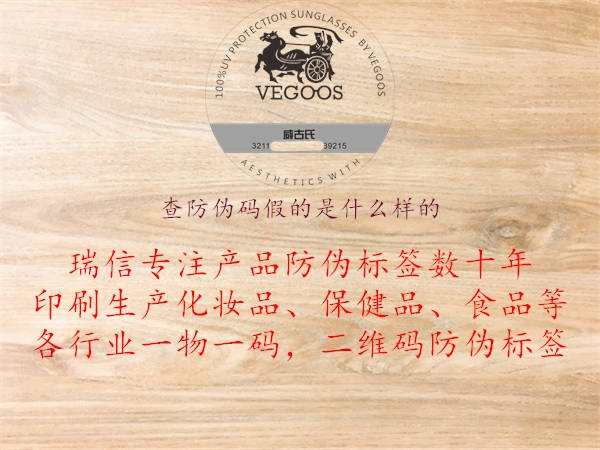 100%UV PROTECTION SUNGLASSES BY VEGOOS
VEGOOS
威古氏
3211 39215
AESTHETICS WITH
查防伪码假的是什么样的
瑞信专注产品防伪标签数十年
印刷生产化妆品、保健品、食品等
各行业一物一码，二维码防伪标签